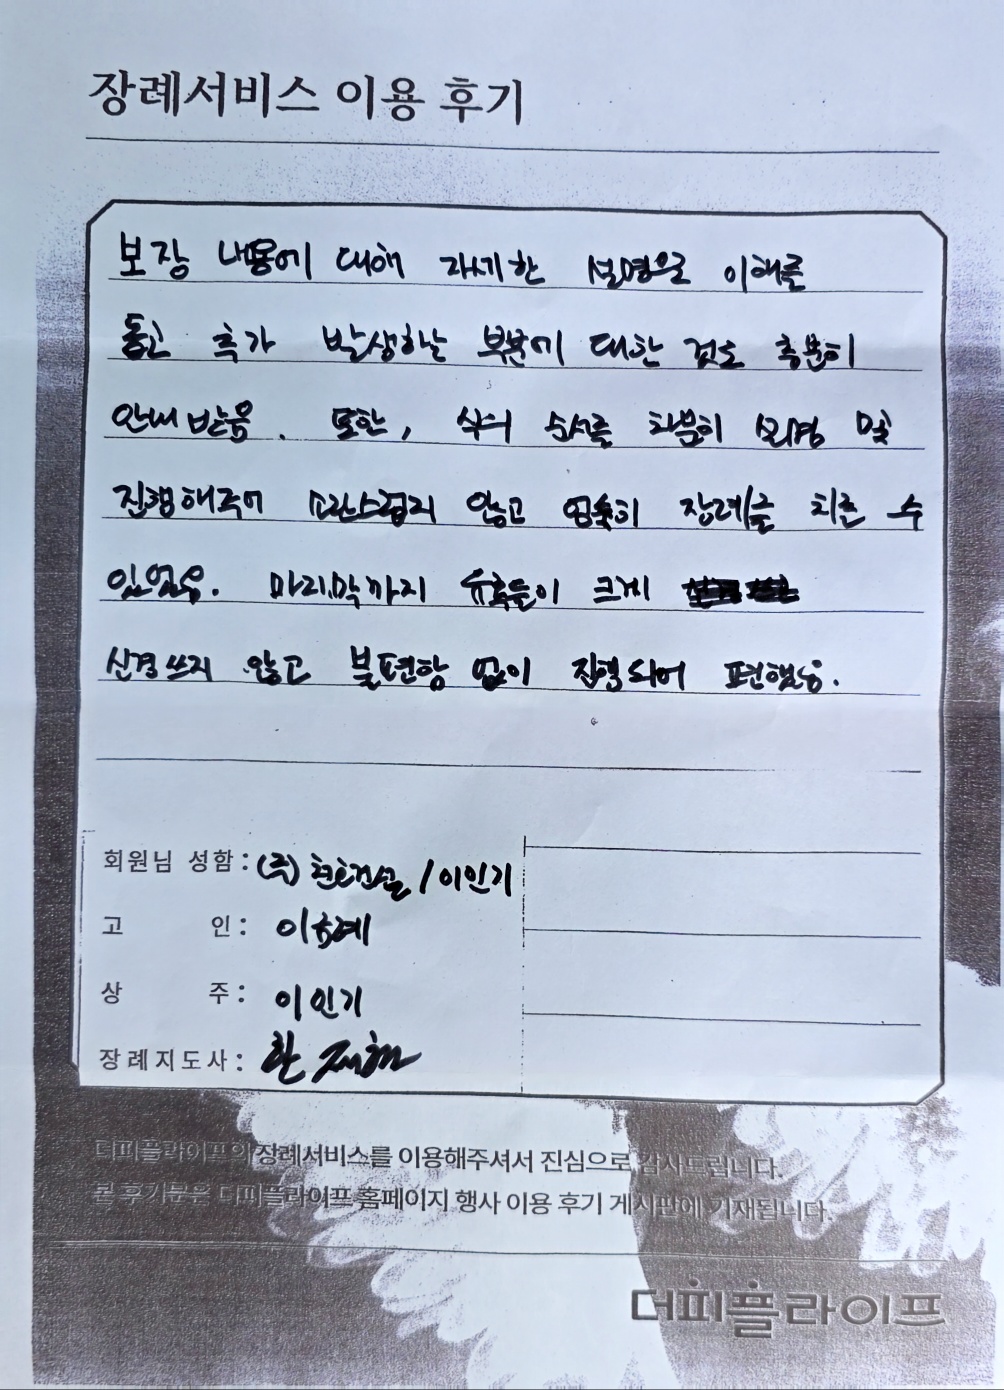 장례서비스 이용 후기
보장 내용에 대해 자세한 설명으로 이해를
돕고 추가 발생하는 부분에 대한 것도 충분히
안내 받음. 또한, 식의 순서를 차분히 설명 및
진행해주어 소란스럽지 않고 엄숙히 장례를 치를 수
있었음. 마지막까지 유족들이 크게
신경쓰지 않고 불편함 없이 진행되어 편했음.
회원님 성함: (주) / 이인기
고 인:
상 주: 이인기
장례지도사: 한
더피플라이프의 장례서비스를 이용해주셔서 진심으로 감사드립니다.
본 후기문은 더피플라이프 홈페이지 행사 이용 후기 게시판에 기재됩니다.
더피플라이프